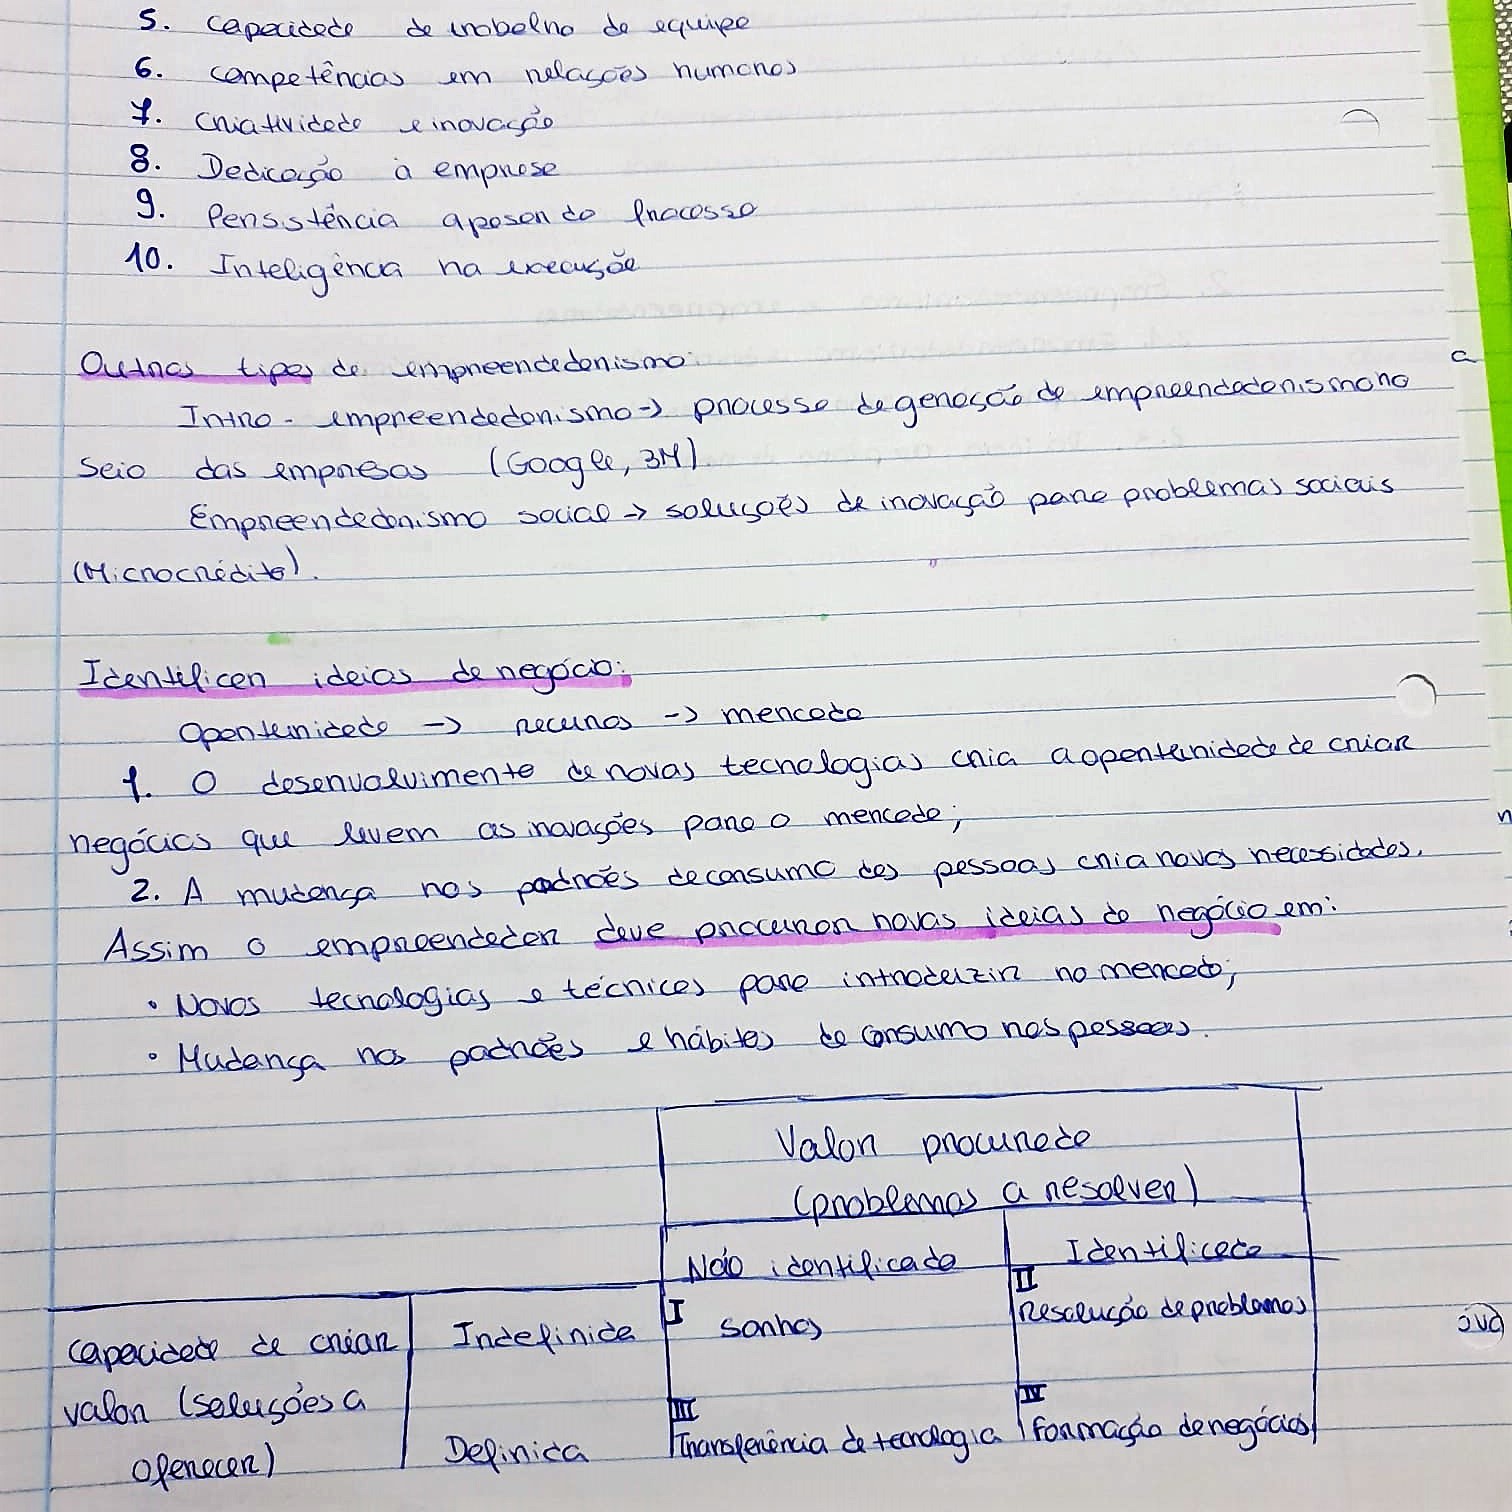 5. Capacidade de trabalho de equipe
6. Competências em relações humanas
7. Criatividade e inovação
8. Dedicação à empresa
9. Persistência apesar do fracasso
10. Inteligência na execução
Outros tipos de empreendedorismo:
Intra-empreendedorismo -> processo de geração de empreendedorismo no
seio das empresas (Google, 3M).
Empreendedorismo social -> soluções de inovação para problemas sociais
(Microcrédito).
Identificar ideias de negócio:
Oportunidade -> recursos -> mercado
1. O desenvolvimento de novas tecnologias cria a oportunidade de criar
negócios que levem as inovações para o mercado;
2. A mudança nos padrões de consumo das pessoas cria novas necessidades.
Assim o empreendedor deve procurar novas ideias de negócio em:
• Novas tecnologias e técnicas para introduzir no mercado;
• Mudança nos padrões e hábitos de consumo nas pessoas.
Valor procurado
(problemas a resolver)
Não identificado Identificado
Capacidade de criar
valor (soluções a
oferecer)
Indefinida
I Sonhos
II Resolução de problemas
Definida
III Transferência de tecnologia
IV Formação de negócios